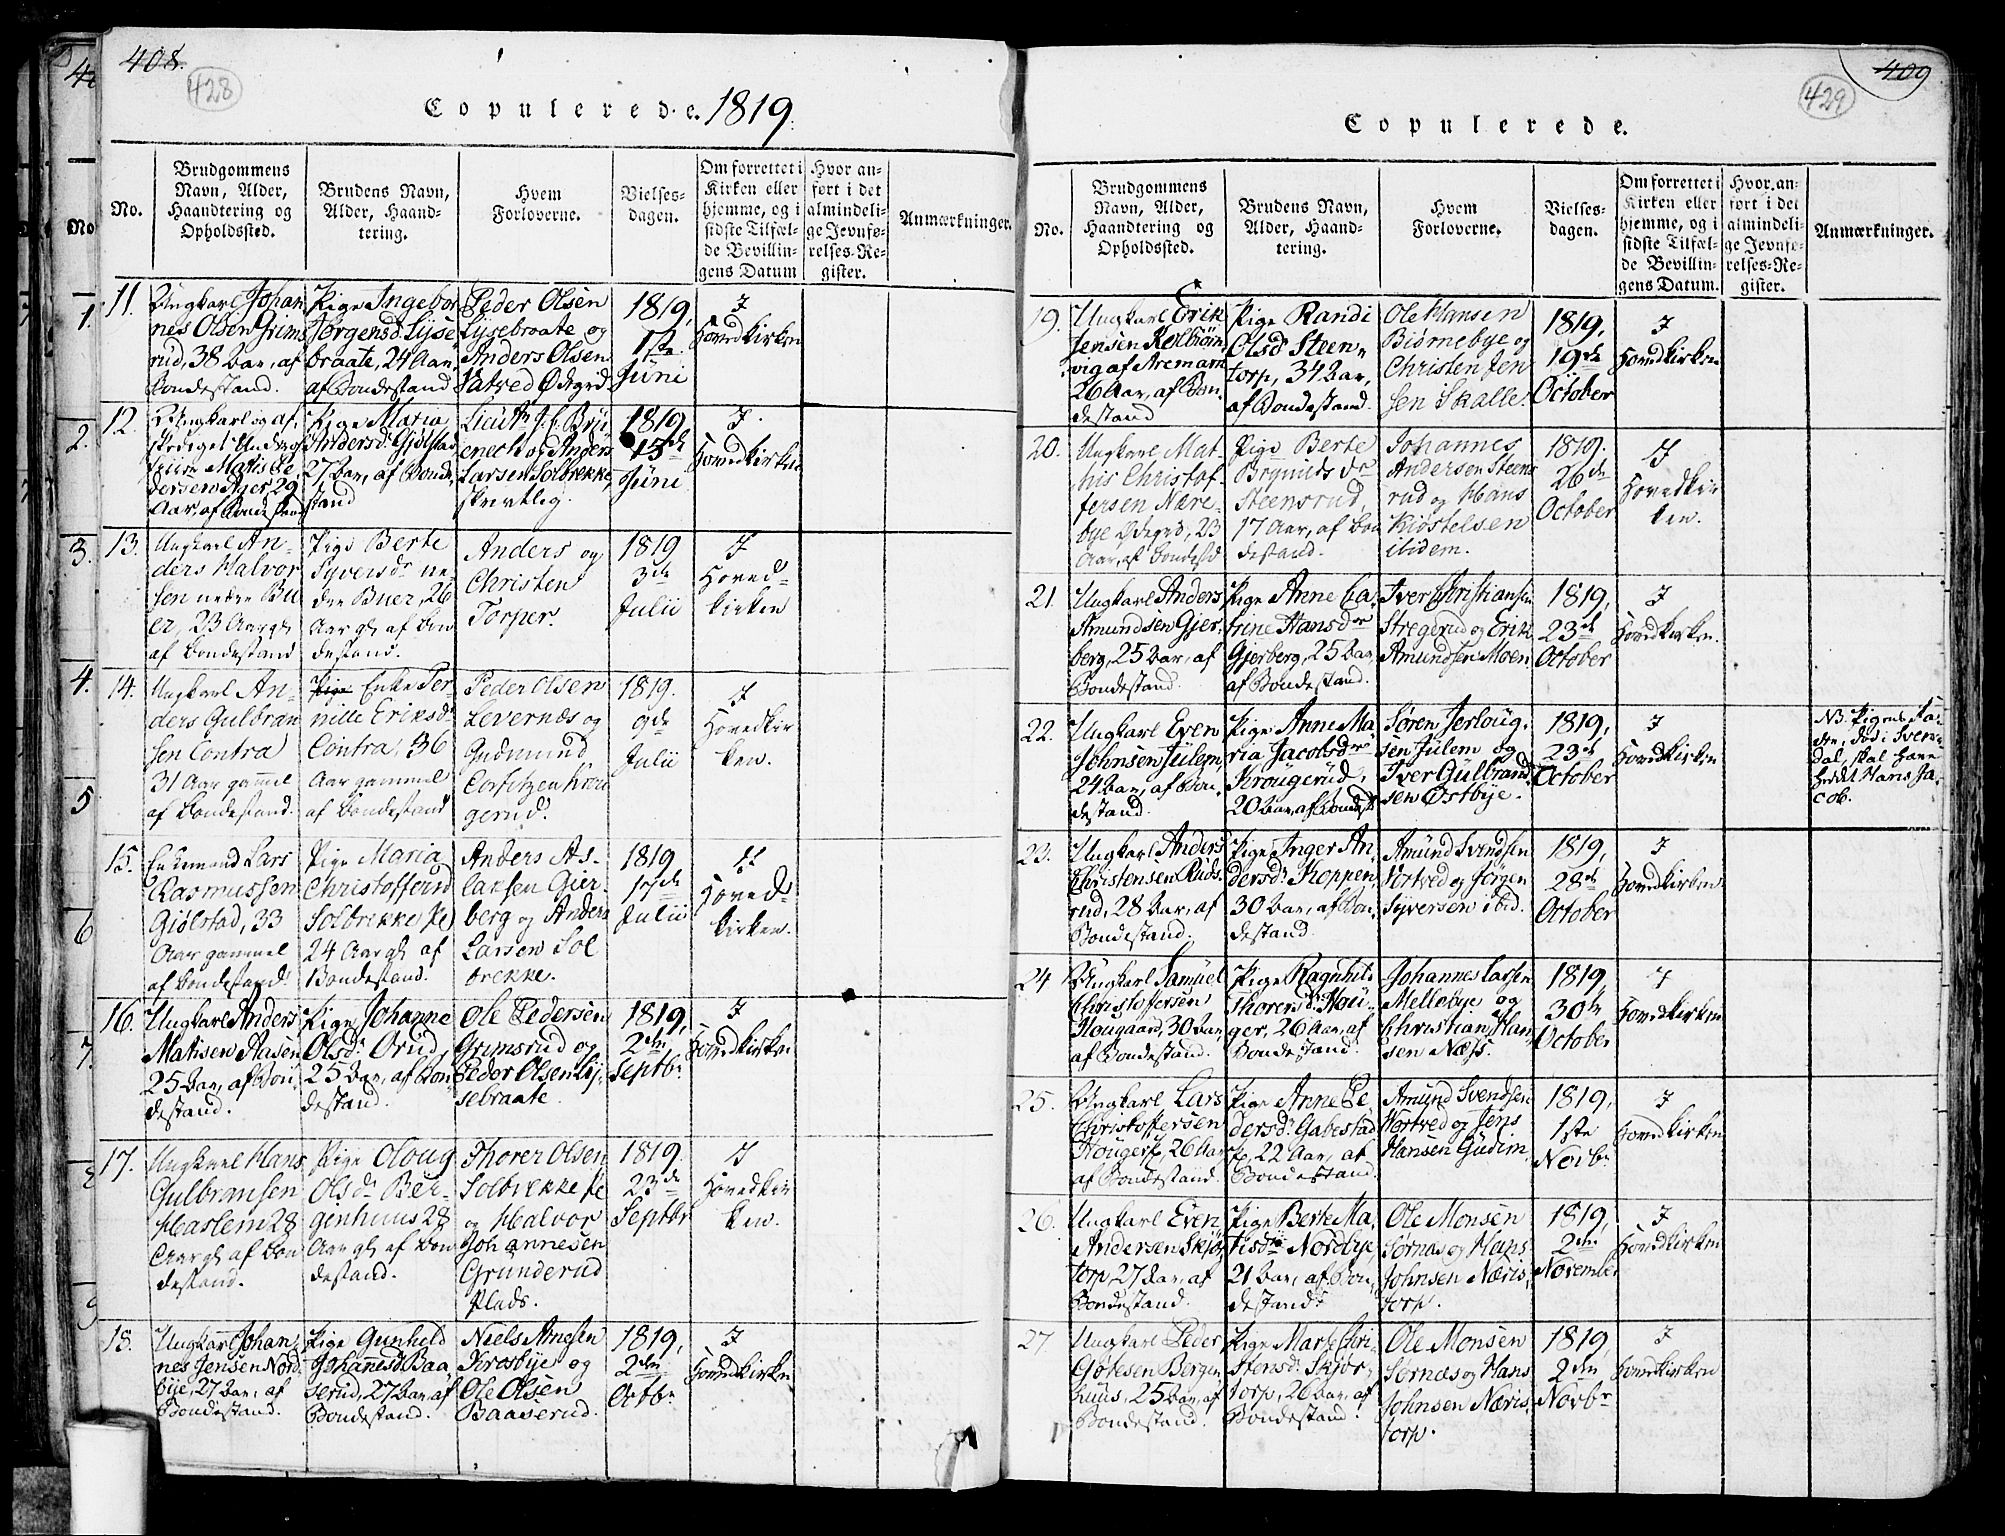 408.
428
Copulerede. 1819.
No.
Brudgommens
Navn, Alder,
Haandtering og
Opholdssted.
Brudens Navn,
Alder, Haand-
tering.
Hvem
Forloverne.
Vielses-
dagen.
Om forrettet i
Kirken eller
hjemme, og i
sidste Tilfæl-
de Bevillin-
gens Datum
Hvor an-
ført i det
almindeli-
ge Jevnfø-
relses-Re-
gister.
Anmærkninger.
11.
Ungkarl Johan
nes Olsen Grims
rud, 38 Aar, af
Bondestand.
Pige Ingebor
Jørgensdr Lyse
braate, 24 Aar,
af Bondestand
Peder Olsen
Lysebraate og
Anders Olsen
Vatved Ødegrd
1819,
1ste
Juni
I
Hovedkirken
12.
Ungkarl og af
Pedersen Ager 29
Aar, af Bondestand
Pige Maria
Andersdr Gjølstad
27 Aar, af Bonde
stand
Larsen Solbrekke,
skrivtlig.
1819
15de
Juni
I
Hovedkirken
13.
Ungkarl An-
ders Halvor
sen nedre Bu
er, 23 Aar gl
af Bondestand
Pige Berte
Syversdr ne-
dre Buer, 26
Aar gl af Bon
destand.
Anders og
Christen
Torper.
1819
3de
Julii
I
Hoved-
kirken
14.
Ungkarl An-
ders Gulbran
sen Contra
31 Aar gammel
af Bondestand.
Enke Per-
nille Eriksdr
Contra, 36
Aar gammel
af Bondestand
Peder Olsen
Levernæs og
Gudmund
gerud.
1819.
9de
Julii
I
Hovedkir
ken.
15.
Enkemand Lars
Rasmussen
Gjølstad, 33
Aar gammel
af Bondestand
Pige Maria
Christoffersd
Solbrekke
24 Aar gl af
Bondestand.
Anders As-
laksen Gjer-
berg og Anders
Larsen Sol
brekke.
1819
17de
Julii
Hoved-
kirken.
16.
Ungkarl Anders
Matisen Aasen
25 Aar, af Bon-
destand.
Pige Johanne
Olsdr Orud
25 Aar, af Bon
destand.
Ole Pedersen
Grimsrud og
Peder Olsen Ly-
sebraate.
1819,
2den
Septbr
I
Hovedkirken
17.
Ungkarl Hans
Gulbransen
Haslem 28
Aar gl af Bon
destand.
Pige Oloug
Olsdr Ber-
genhuus 28
Aar gl af Bon
destand.
Thorer Olsen
Solbrekke
og Halvor
Johannesen
Grunderud
Plads.
1819.
23de
Septbr
I
Hovedkir
ken.
18.
Ungkarl Johan
nes Jensen Nord-
bye, 27 Aar, af
Bondestand.
Pige Gunhild
Johannesdr Baa
serud, 27 Aar, af
Bondestand.
Niels Arnesen
Krosbye og
Ole Olsen
Baaserud.
1819,
2den
Octbr
I
Hovedkirken
409
429
Copulerede.
No.
Brudgommens
Navn, Alder,
Haandtering og
Opholdssted.
Brudens Navn,
Alder, Haand-
tering.
Hvem
Forloverne.
Vielses-
dagen.
Om forrettet i
Kirken eller
hjemme, og i
sidste Tilfæl-
de Bevillin-
gens Datum.
Hvor an-
ført i det
almindeli-
ge Jevnfø-
relses-Re-
gister.
Anmærkninger.
19.
Ungkarl Erik
Jensen Kolbiørn
vig af Aremark
26 Aar, af Bon-
destand
Pige Randi
Olsdr Steen-
torp, 34 Aar,
af Bondestand.
Ole Hansen
Biørnebye og
Christen Jen
sen Skalle.
1819,
19de
October
I
Hovedkirken
20.
Ungkarl Mat-
his Christof-
fersen Nære-
bye Ødegrd, 23
Aar, af Bondestd
Pige Berte
Brynildsdr
Steensrud,
17 Aar, af Bon
destand.
Johannes
Anderson Steens
rud og Hans
Kidstelsen
ibidem.
1819.
26de
October
I
Hovedkir
ken.
21.
Ungkarl Anders
Amundsen Gjer-
berg, 25 Aar, af
Bondestand.
Pige Anne Ca-
trine Hansdr
Gjerberg, 25 Aar,
af Bondestand.
Iver Christiansen
Stregerud og Erik
Amundsen Moen
1819,
23de
October
I
Hovedkirken.
22.
Ungkarl Even
Johnsen Julem,
24 Aar, af Bon-
destand.
Pige Anne Ma-
ria Jacobsdr
Krougerud,
20 Aar, af Bondest
Søren Jerloug-
sen Julem og
Iver Gulbrand
sen Østbye.
1819,
23de
October
I
Hovedkirken
NB. Pigens Fa-
der, død i Sven-
dal, skal have
hedt Hans Ja-
cob.
23.
Ungkarl Anders
Christensen Ruds-
rud, 28 Aar, af
Bondestand.
Pige Inger An-
dersdr Koppen,
30 Aar, af Bon-
destand
Amund Svendsen
Hortved og Jørgen
Syversen ibid.
1819,
28de
October
I
Hovedkirken.
24
Ungkarl Samuel
Christoffersen
Hougaard, 30 Aar,
af Bondestand.
Pige Ragnhild
Thorersdr Hou-
ger, 26 Aar, af
Bondestand.
Johannes Larsen
Mellebye og
Christian Han
sen Næss.
1819,
30te
October
I
Hovedkirken
25.
Ungkarl Lars
Christoffersen
26 Aar
af Bondestand.
Pige Anne Pe
dersdr Gabestad
22 Aar, af
Bondestand.
Amund Svendsen
Hortved og Jens
Hansen Gudim.
1819,
1ste
Novbr
I
Hovedkirken
26.
Ungkarl Even
Andersen Skjør
torp 27 Aar, af
Bondestand.
Pige Berte Ma-
tisdr Nordbye,
21 Aar, af Bon-
destand.
Ole Monsen
Sørnæs og Hans
Johnsen Næris-
torp.
1819,
2den
November
I
Hovedkirken
27
Ungkarl Peder
Gøtesen Bergen
huus, 25 Aar, af
Bondestand.
Pige Marte Chri-
stensdr Skjør-
torp, 26 Aar, af
Bondestand.
Ole Monsen
Sørnæs og Hans
Johnsen Næris-
torp.
1819,
2den
Novbr
I
Hovedkirken